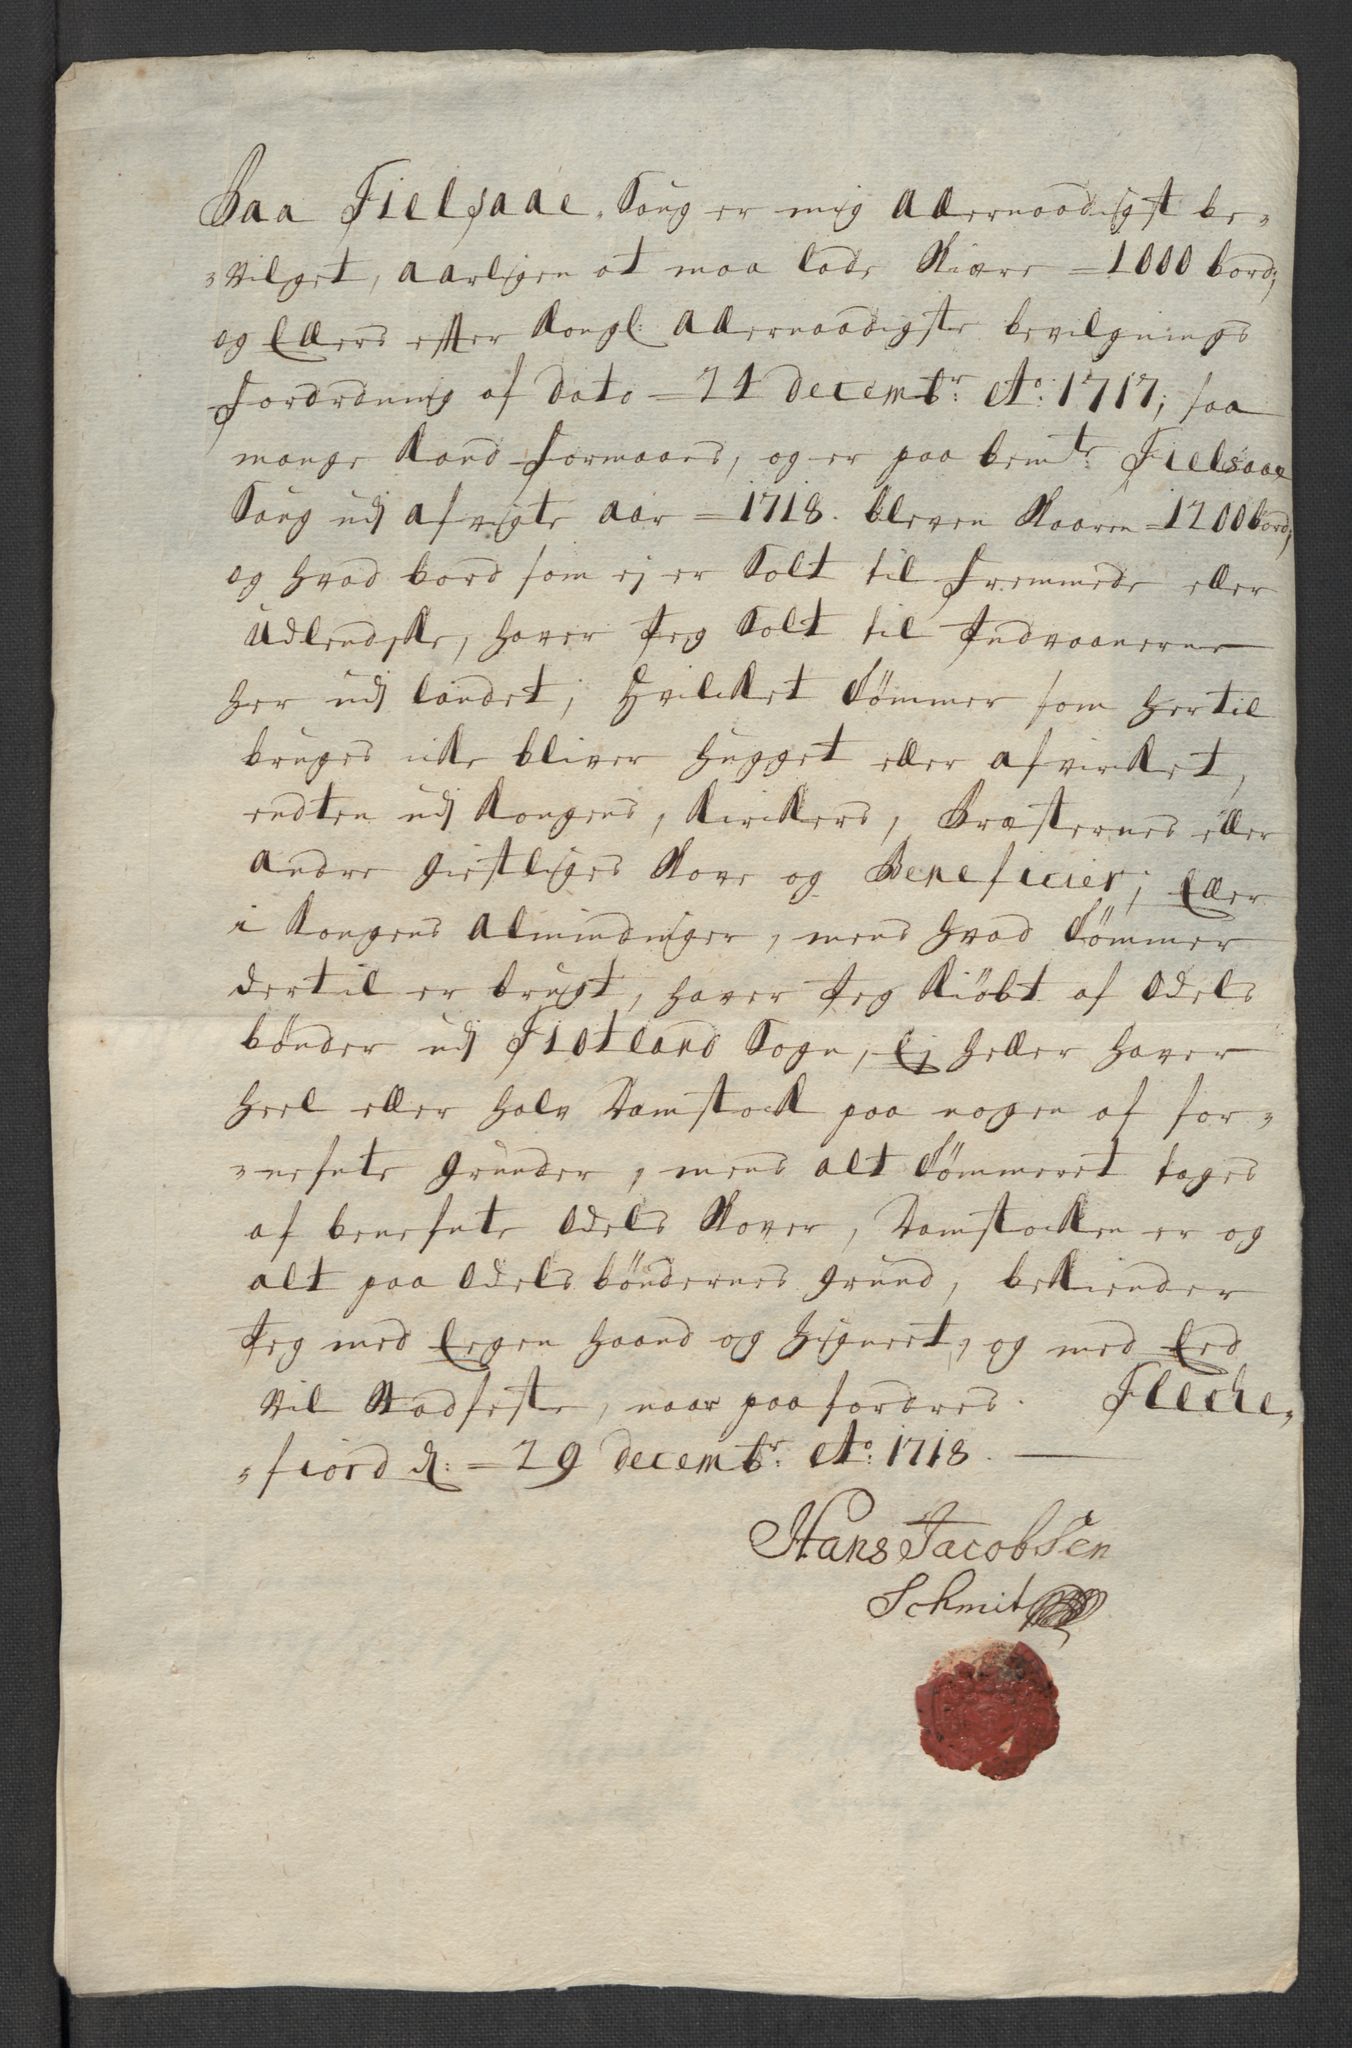 Paa Fielsaae Saug er mig Allernaadigst be-
-vilget, aarligen at maa lade skiære = 1000 bord;
og Ellers efter Kongl: Allernaadigste bevilgnings
Forordning af dato = 24 decembr: Ao: 1717, saa
mange Kand Formaaes, og er paa bemte: Fielsaae
Saug udj afvigte aar = 1718. bleven skaaren = 1200 bord;
og hvad bord som ej er Solt til Fremmede eller
Udlendske, haver Jeg Solt til Indvaanerne
her udj landet; hvilcket Tømmer som hertil
bruges icke bliver hugget eller afvircket,
endten udj Kongens, Kirckers, Præsternes eller
andre giestliges Skove og Beneficier; Eller
i Kongens Almindinger, mens hvad Tømmer
dertil er brugt, haver Jeg Kiøbt af Odels
bønder udj Fiotland Sogn, Ej heller haver
heel eller halv Damstock paa nogen af for-
-nefnte grunder, mens alt Tømmeret tages
af benefnte Odels Skover, Damstocken er og
alt paa Odelsbøndernes grund, bekiender
Jeg med Egen haand og Signeet, og med Eed
vil Stadfeste, naar paafordres. Fleche-
-fiord d: = 29 decembr: Ao: 1718.
Hans Jacobsen
Schmit